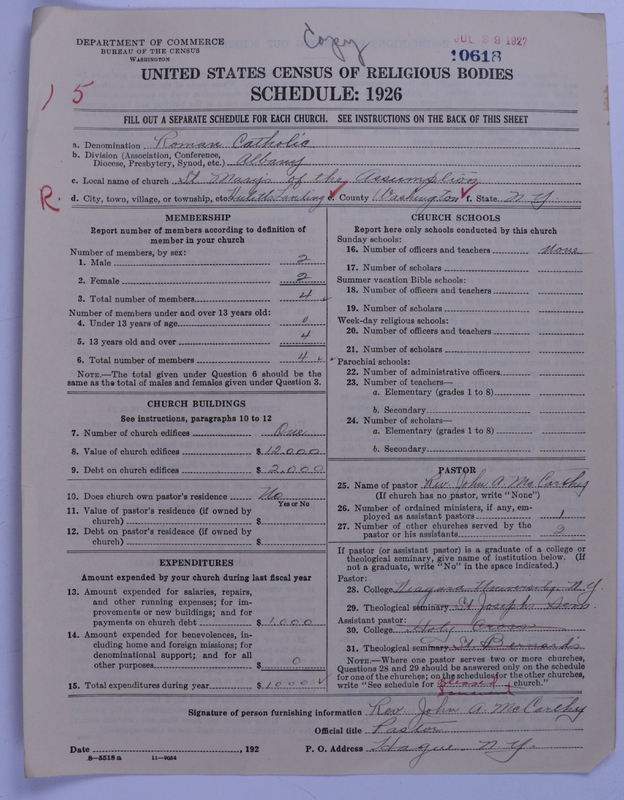 Copy
DEPARTMENT OF COMMERCE
BUREAU OF THE CENSUS
WASHINGTON
JUL 29 1927
10618
UNITED STATES CENSUS OF RELIGIOUS BODIES
SCHEDULE: 1926
15
FILL OUT A SEPARATE SCHEDULE FOR EACH CHURCH. SEE INSTRUCTIONS ON THE BACK OF THIS SHEET
a. Denomination Roman Catholic
b. Division (Association, Conference,
Diocese, Presbytery, Synod, etc.) Albany
c. Local name of church St Mary's of the Assumption
R. d. City, town, village, or township, etc. Huletts Landing e. County Washington f. State N Y
MEMBERSHIP
Report number of members according to definition of
member in your church
Number of members, by sex:
1. Male 2
2. Female 2
3. Total number of members 4
Number of members under and over 13 years old:
4. Under 13 years of age 0
5. 13 years old and over 4
6. Total number of members 4
NOTE.—The total given under Question 6 should be the
same as the total of males and females given under Question 3.
CHURCH BUILDINGS
See instructions, paragraphs 10 to 12
7. Number of church edifices One
8. Value of church edifices $ 12,000
9. Debt on church edifices $ 2,000
10. Does church own pastor's residence No
Yes or No
11. Value of pastor's residence (if owned by
church) $
12. Debt on pastor's residence (if owned by
church) $
EXPENDITURES
Amount expended by your church during last fiscal year
13. Amount expended for salaries, repairs,
and other running expenses; for im-
provements or new buildings; and for
payments on church debt $ 1,000
14. Amount expended for benevolences, in-
cluding home and foreign missions; for
denominational support; and for all
other purposes $ 0
15. Total expenditures during year $ 1000
CHURCH SCHOOLS
Report here only schools conducted by this church
Sunday schools:
16. Number of officers and teachers none
17. Number of scholars
Summer vacation Bible schools:
18. Number of officers and teachers
19. Number of scholars
Week-day religious schools:
20. Number of officers and teachers
21. Number of scholars
Parochial schools:
22. Number of administrative officers
23. Number of teachers—
a. Elementary (grades 1 to 8)
b. Secondary
24. Number of scholars—
a. Elementary (grades 1 to 8)
b. Secondary
PASTOR
25. Name of pastor Rev. John A. McCarthy
(If church has no pastor, write "None")
26. Number of ordained ministers, if any, em-
ployed as assistant pastors 1
27. Number of other churches served by the
pastor or his assistants 2
If pastor (or assistant pastor) is a graduate of a college or
theological seminary, give name of institution below. (If
not a graduate, write "No" in the space indicated.)
Pastor:
28. College Niagara University N.Y.
29. Theological seminary St Joseph Sem.
Assistant pastor:
30. College Holy Cross
31. Theological seminary St Bernard's
NOTE.—Where one pastor serves two or more churches,
Questions 28 and 29 should be answered only on the schedule
for one of the churches; on the schedules for the other churches,
write "See schedule for Blessed church."
Sacrament
Signature of person furnishing information Rev. John A. McCarthy
Official title Pastor
Date , 192 P. O. Address Hague N.Y.
8-5518 a 11-9034